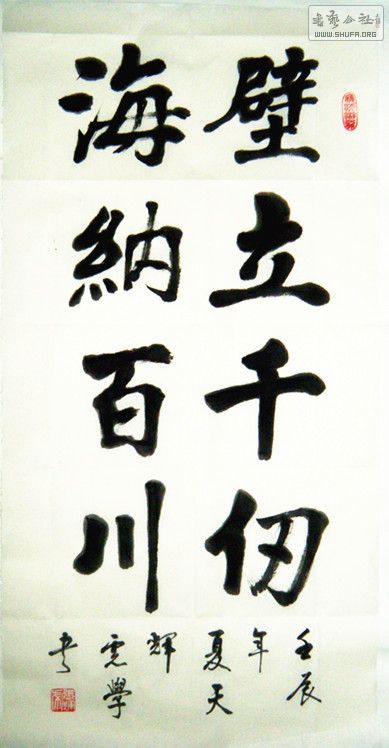 壁立千仞
海納百川
壬辰
年
夏天
輝
學
书
書藝公社
WWW.SHUFA.ORG